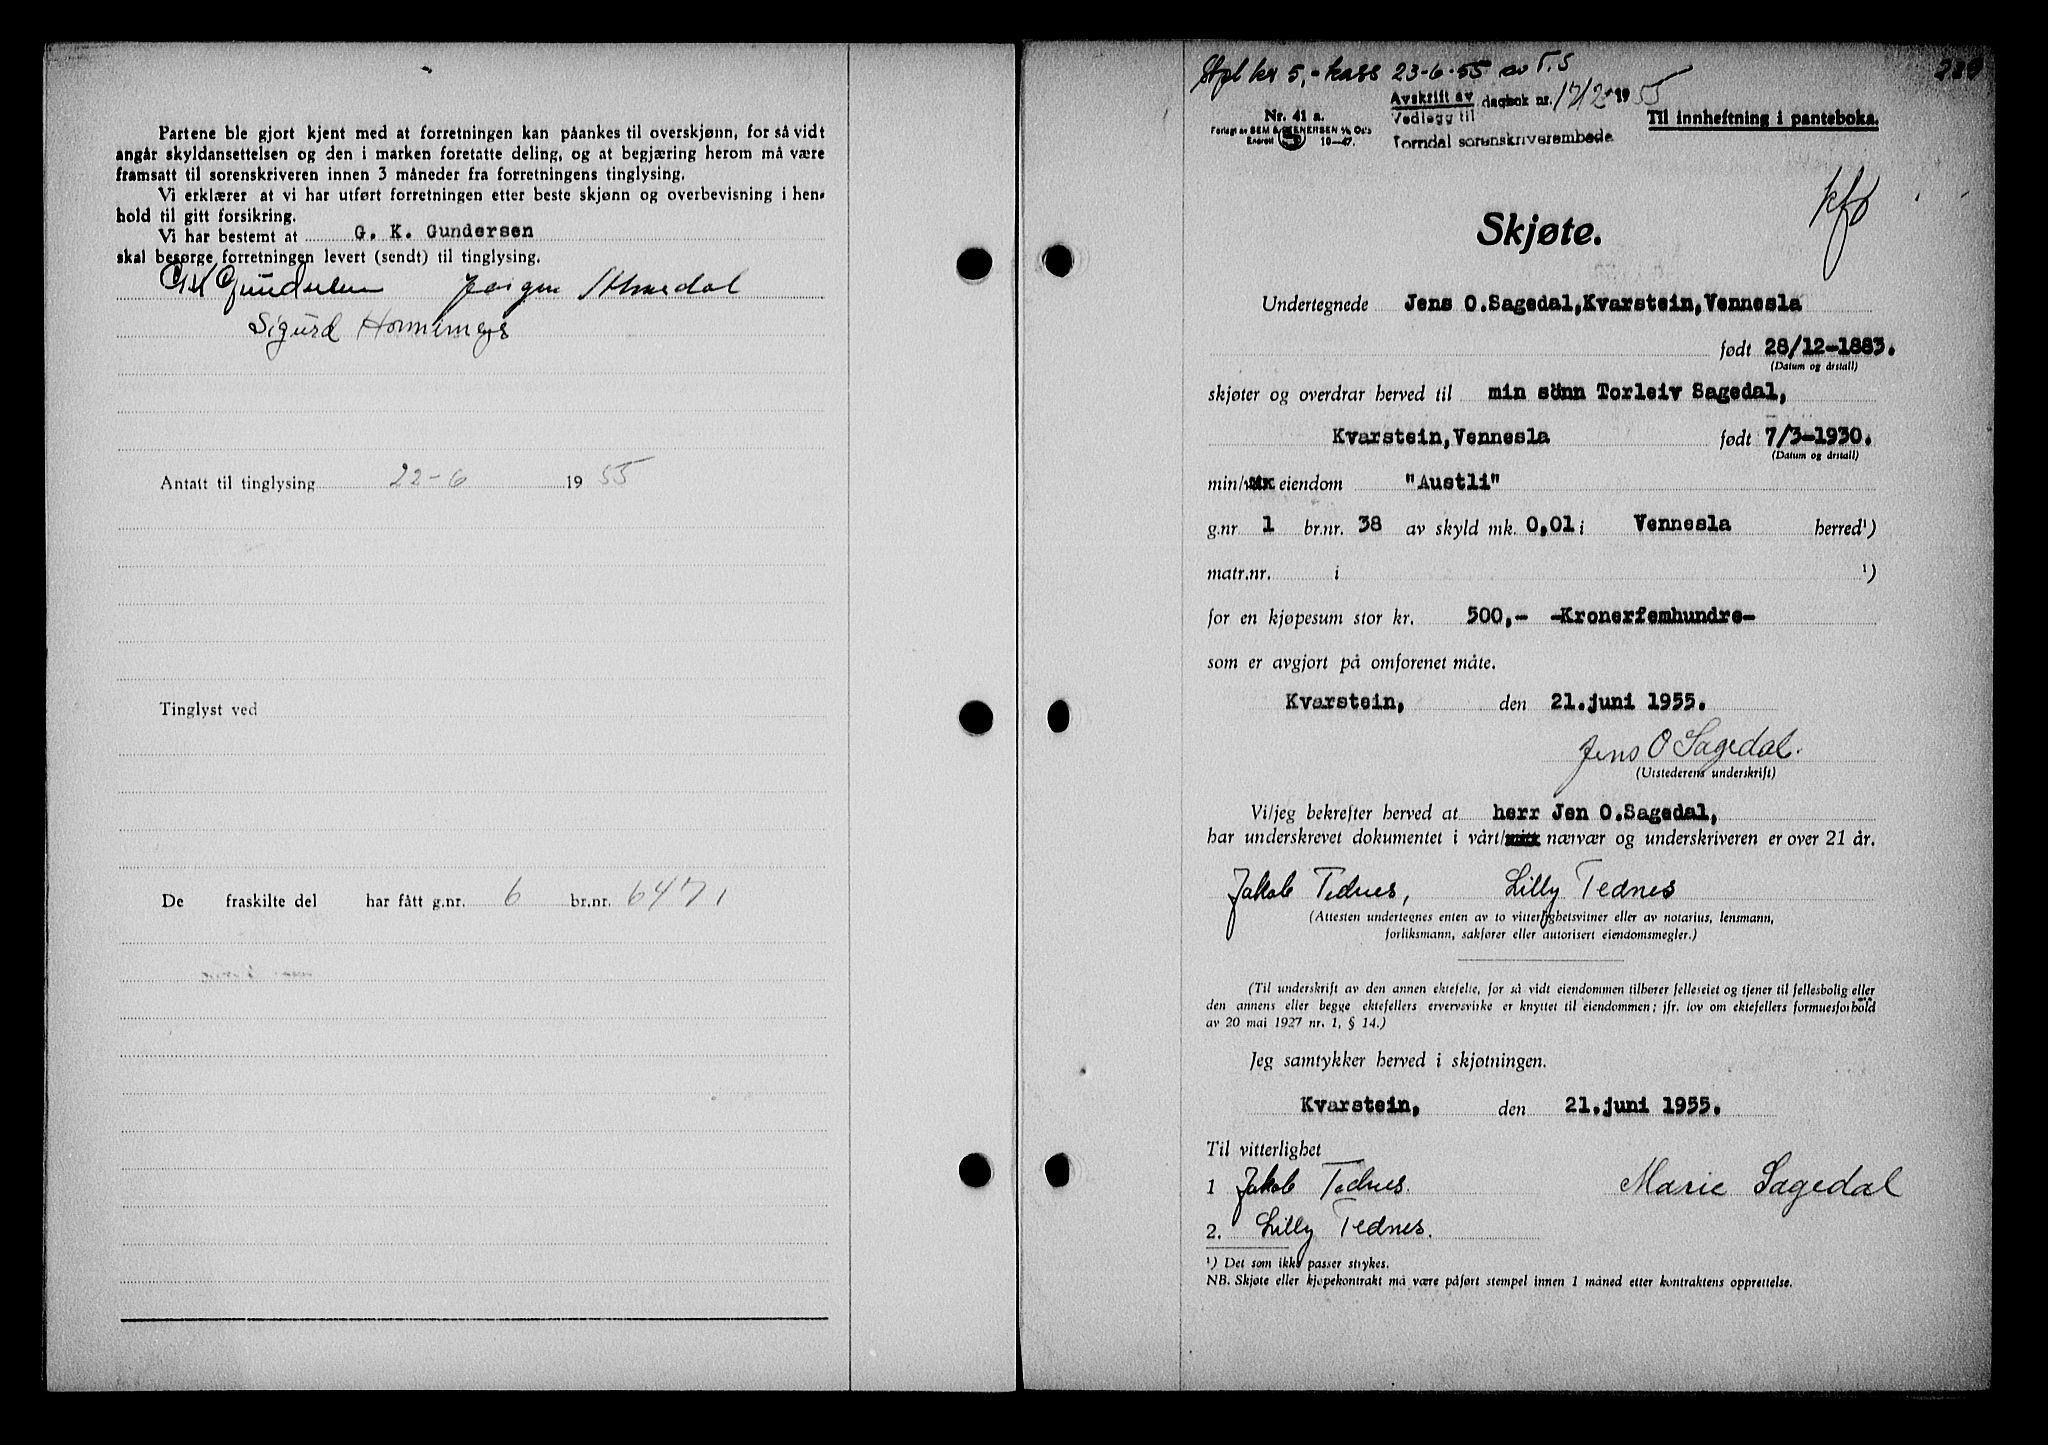 Partene ble gjort kjent med at forretningen kan påankes til overskjønn, for så vidt
angår skyldansettelsen og den i marken foretatte deling, og at begjæring herom må være
framsatt til sorenskriveren innen 3 måneder fra forretningens tinglysing.
Vi erklærer at vi har utført forretningen etter beste skjønn og overbevisning i hen-
hold til gitt forsikring.
Vi har bestemt at G. K. Gundersen
skal besørge forretningen levert (sendt) til tinglysing.
G K Gundersen Jørgen
Sigurd
Antatt til tinglysing 22-6 1955
Tinglyst ved
De fraskilte del har fått g.nr. 6 br.nr. 647
Stpl kr 5,- kass 23-6-55 av T.S
Avskrift av dagbok nr. 1712 1955
Vedlegg til
Torridal sorenskriverembede
Nr. 41 a.
Forlagt av SEM & STENERSEN A/S Oslo
Enerett 10-47.
Til innheftning i panteboka.
Skjøte.
Undertegnede Jens O.Sagedal,Kvarstein,Vennesla
født 28/12-1883.
(Datum og årstall)
skjøter og overdrar herved til min sönn Torleiv Sagedal,
Kvarstein,Vennesla født 7/3-1930.
(Datum og årstall)
min/vår eiendom "Austli"
g.nr 1 br.nr. 38 av skyld mk. 0,01 i Vennesla herred¹)
matr.nr. i ¹)
for en kjøpesum stor kr. 500,- -Kronerfemhundre-
som er avgjort på omforenet måte.
Kvarstein, den 21.juni 1955.
Jens O Sagedal.
(Utstederens underskrift)
Vi/jeg bekrefter herved at herr Jen O.Sagedal,
har underskrevet dokumentet i vårt/mitt nærvær og underskriveren er over 21 år.
Jakob Tednes, Lilly Tednes
(Attesten undertegnes enten av to vitterlighetsvitner eller av notarius, lensmann,
forliksmann, sakfører eller autorisert eiendomsmegler.)
(Til underskrift av den annen ektefelle, for så vidt eiendommen tilhører felleseiet og tjener til fellesbolig eller
den annens eller begge ektefellers ervervsvirke er knyttet til eiendommen; jfr. lov om ektefellers formuesforhold
av 20 mai 1927 nr. 1, § 14.)
Jeg samtykker herved i skjøtningen.
Kvarstein, den 21.juni 1955.
Til vitterlighet
1 Jakob Tednes. Marie Sagedal
2. Lilly Tednes.
¹) Det som ikke passer strykes.
NB. Skjøte eller kjøpekontrakt må være påført stempel innen 1 måned etter kontraktens opprettelse.